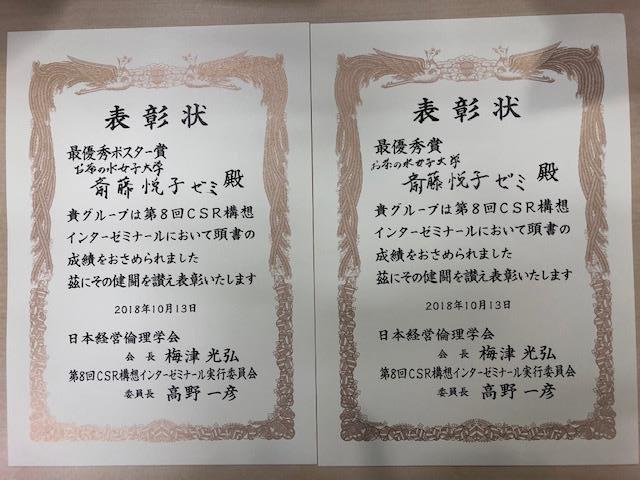 表彰状
最優秀ポスター賞
お茶の水女子大学
斎藤悦子ゼミ 殿
貴グループは第8回CSR構想
インターゼミナールにおいて頭書の
成績をおさめられました
茲にその健闘を讃え表彰いたします
2018年10月13日
日本経営倫理学会
会長 梅津光弘
第8回CSR構想インターゼミナール実行委員会
委員長 高野一彦
表彰状
最優秀賞
お茶の水女子大学
斎藤悦子ゼミ 殿
貴グループは第8回CSR構想
インターゼミナールにおいて頭書の
成績をおさめられました
茲にその健闘を讃え表彰いたします
2018年10月13日
日本経営倫理学会
会長 梅津光弘
第8回CSR構想インターゼミナール実行委員会
委員長 高野一彦